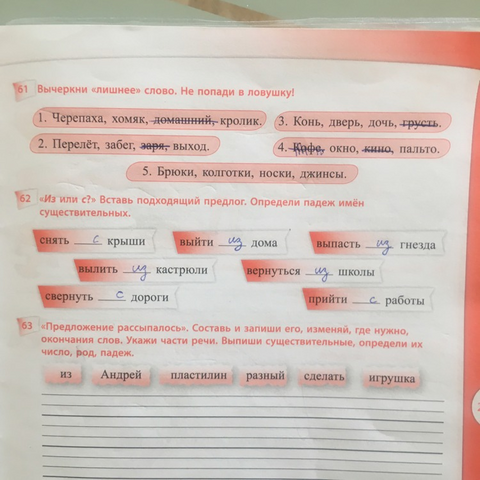 61 Вычеркни «лишнее» слово. Не попади в ловушку!
1. Черепаха, хомяк, домашний, кролик.
3. Конь, дверь, дочь, грусть.
2. Перелёт, забег, заря, выход.
4. Кофе, окно, кино, пальто.
5. Брюки, колготки, носки, джинсы.
62 «Из или с?» Вставь подходящий предлог. Определи падеж имён
существительных.
снять с крыши
выйти из дома
выпасть из гнезда
вылить из кастрюли
вернуться из школы
свернуть с дороги
прийти с работы
63 «Предложение рассыпалось». Составь и запиши его, изменяй, где нужно,
окончания слов. Укажи части речи. Выпиши существительные, определи их
число, род, падеж.
из Андрей пластилин разный сделать игрушка